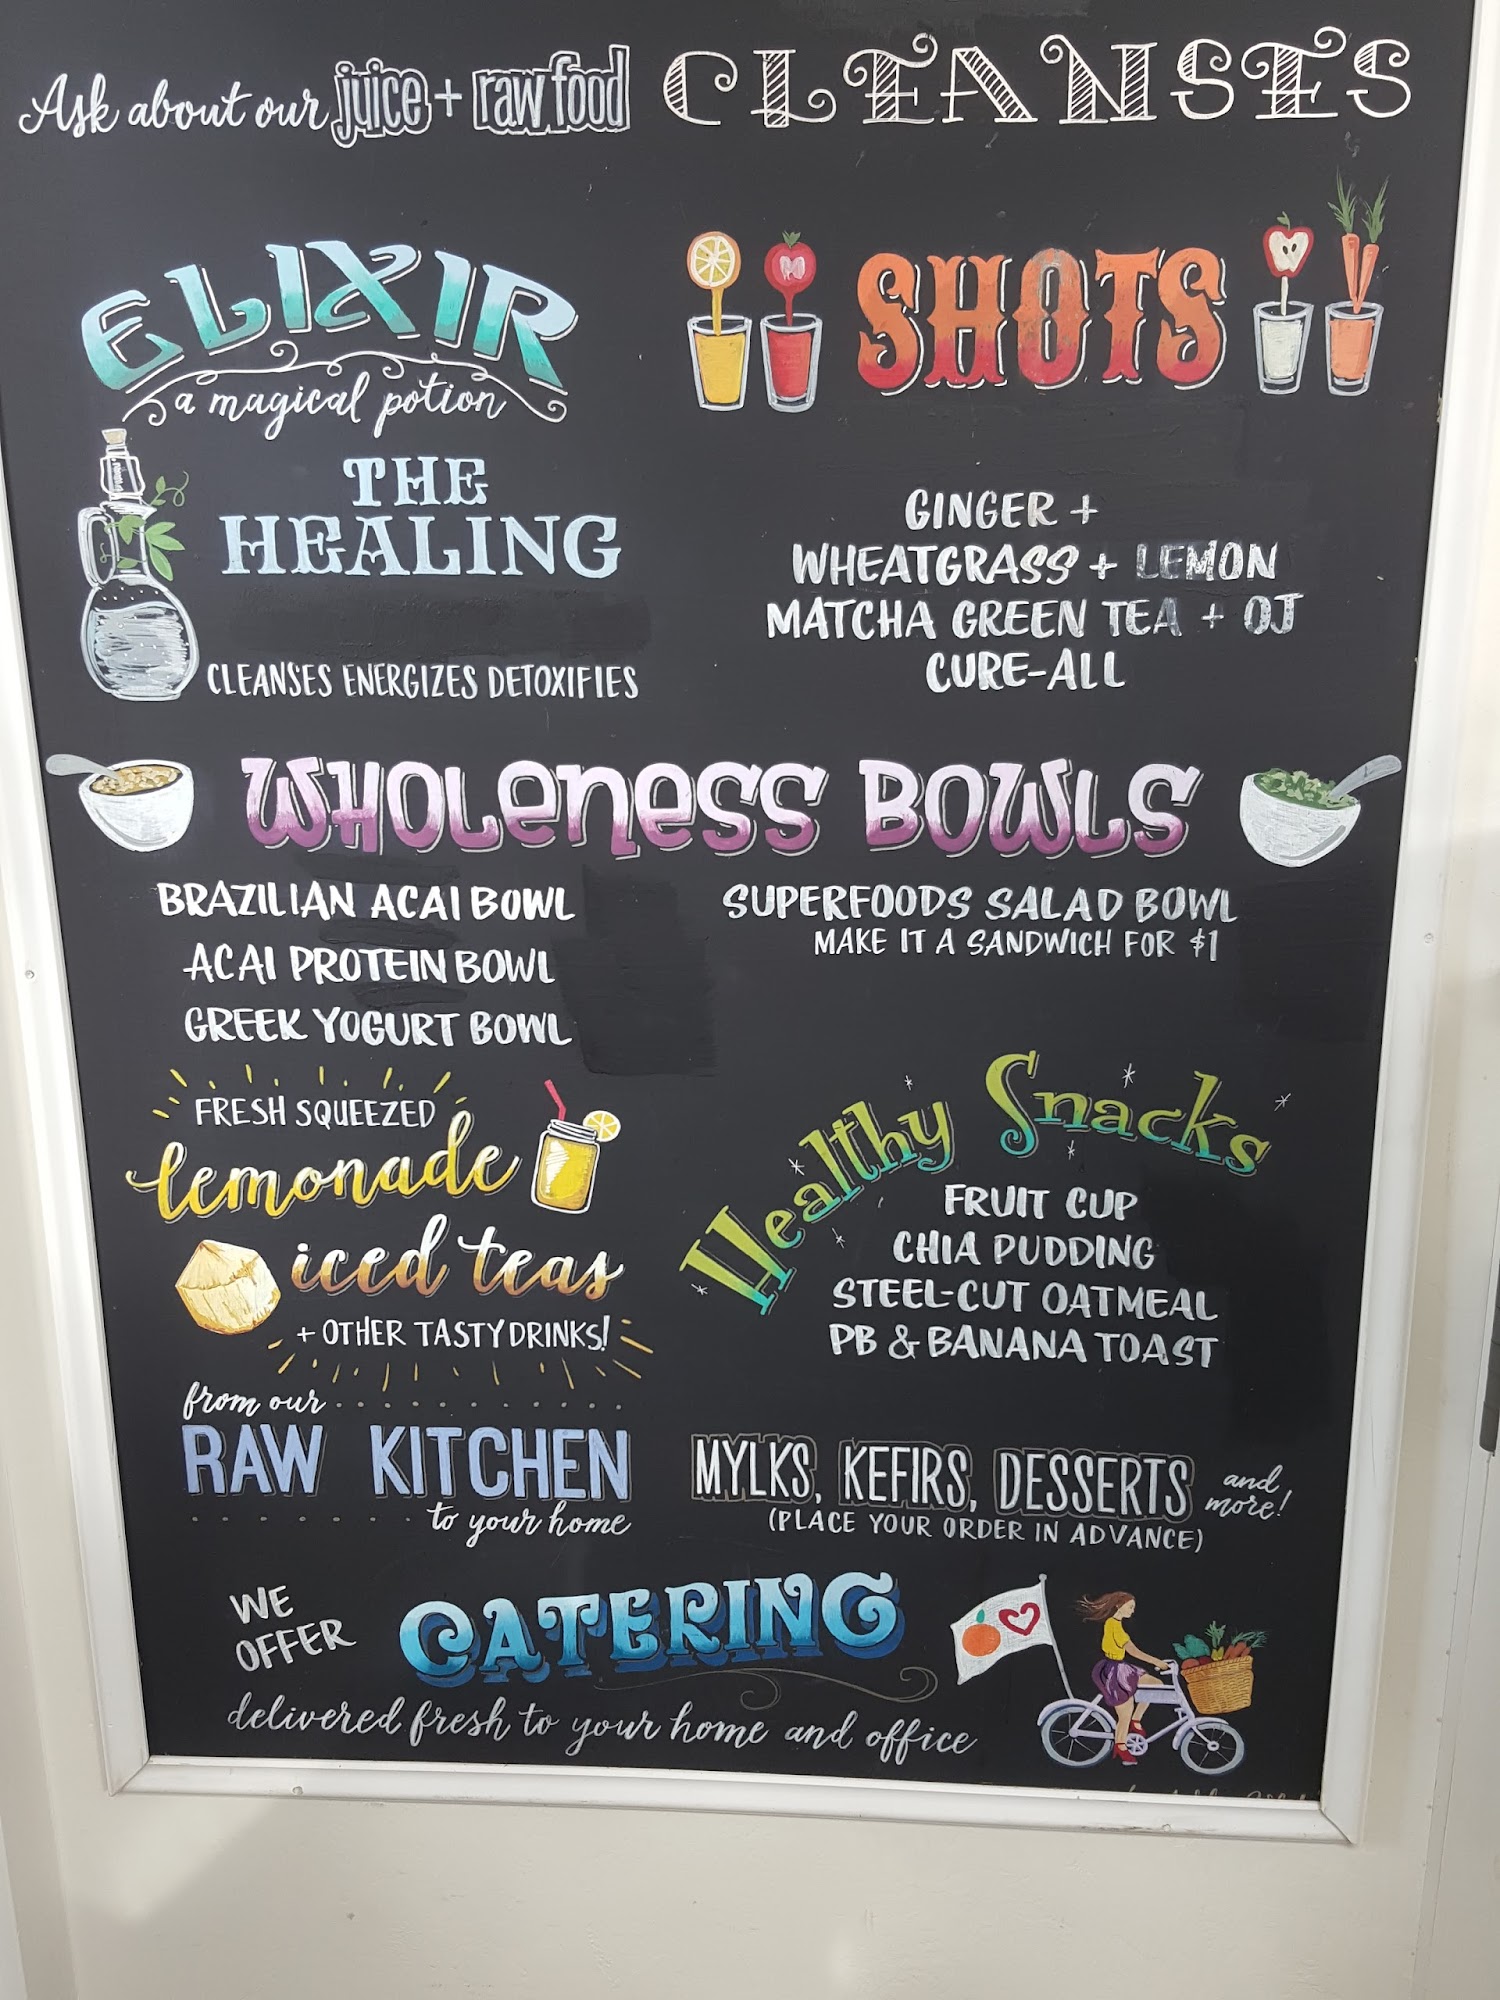 Ask about our juice + raw food CLEANSES
ELIXIR
a magical potion
THE
HEALING
CLEANSES ENERGIZES DETOXIFIES
SHOTS
GINGER +
WHEATGRASS + LEMON
MATCHA GREEN TEA + OJ
CURE-ALL
WHOLENESS BOWLS
BRAZILIAN ACAI BOWL
ACAI PROTEIN BOWL
GREEK YOGURT BOWL
SUPERFOODS SALAD BOWL
MAKE IT A SANDWICH FOR $1
FRESH SQUEEZED
lemonade
iced teas
+ OTHER TASTY DRINKS!
Healthy Snacks
FRUIT CUP
CHIA PUDDING
STEEL-CUT OATMEAL
PB & BANANA TOAST
from our
RAW KITCHEN
to your home
MYLKS, KEFIRS, DESSERTS and more!
(PLACE YOUR ORDER IN ADVANCE)
WE
OFFER
CATERING
delivered fresh to your home and office